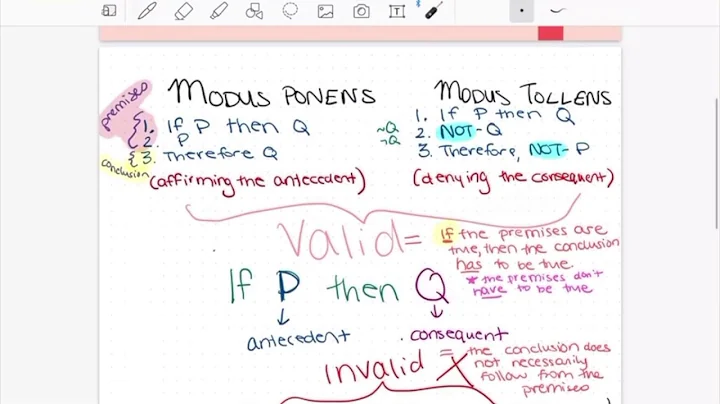 MODUS PONENS
premises
1. If P then Q
2. P
conclusion
3. Therefore Q
(affirming the antecedent)
MODUS TOLLENS
1. If P then Q
~Q
¬Q
2. NOT-Q
3. Therefore, NOT-P
(denying the consequent)
Valid=
If the premises are
true, then the conclusion
has to be true.
* the premises don't
have to be true
If P then Q
antecedent
consequent
Invalid =
the conclusion does
not necessarily
follow from the
premises
T